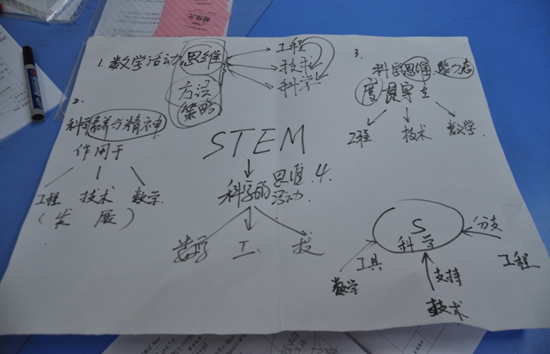 1. 数学活动思维
方法
策略
工程
技术
科学
2.
科学素养与精神
作用于
工程 技术 数学
(发展)
3.
科学思维、能力、态
度是罗主
工程 技术 数学
STEM
科学的思维 4.
活动
数学 工. 技
S
科学
数学
工具
支持
技术
分支
工程